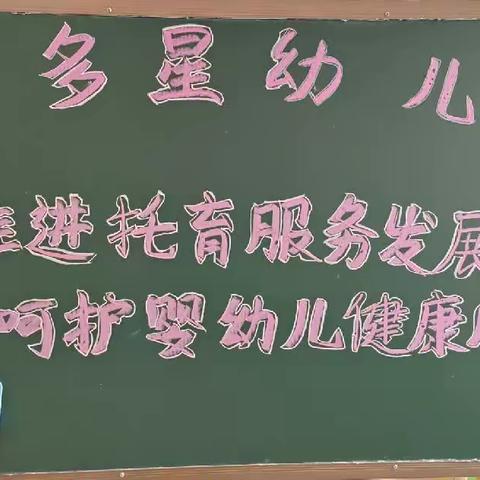 多星幼儿
进托育服务发展
呵护婴幼儿健康